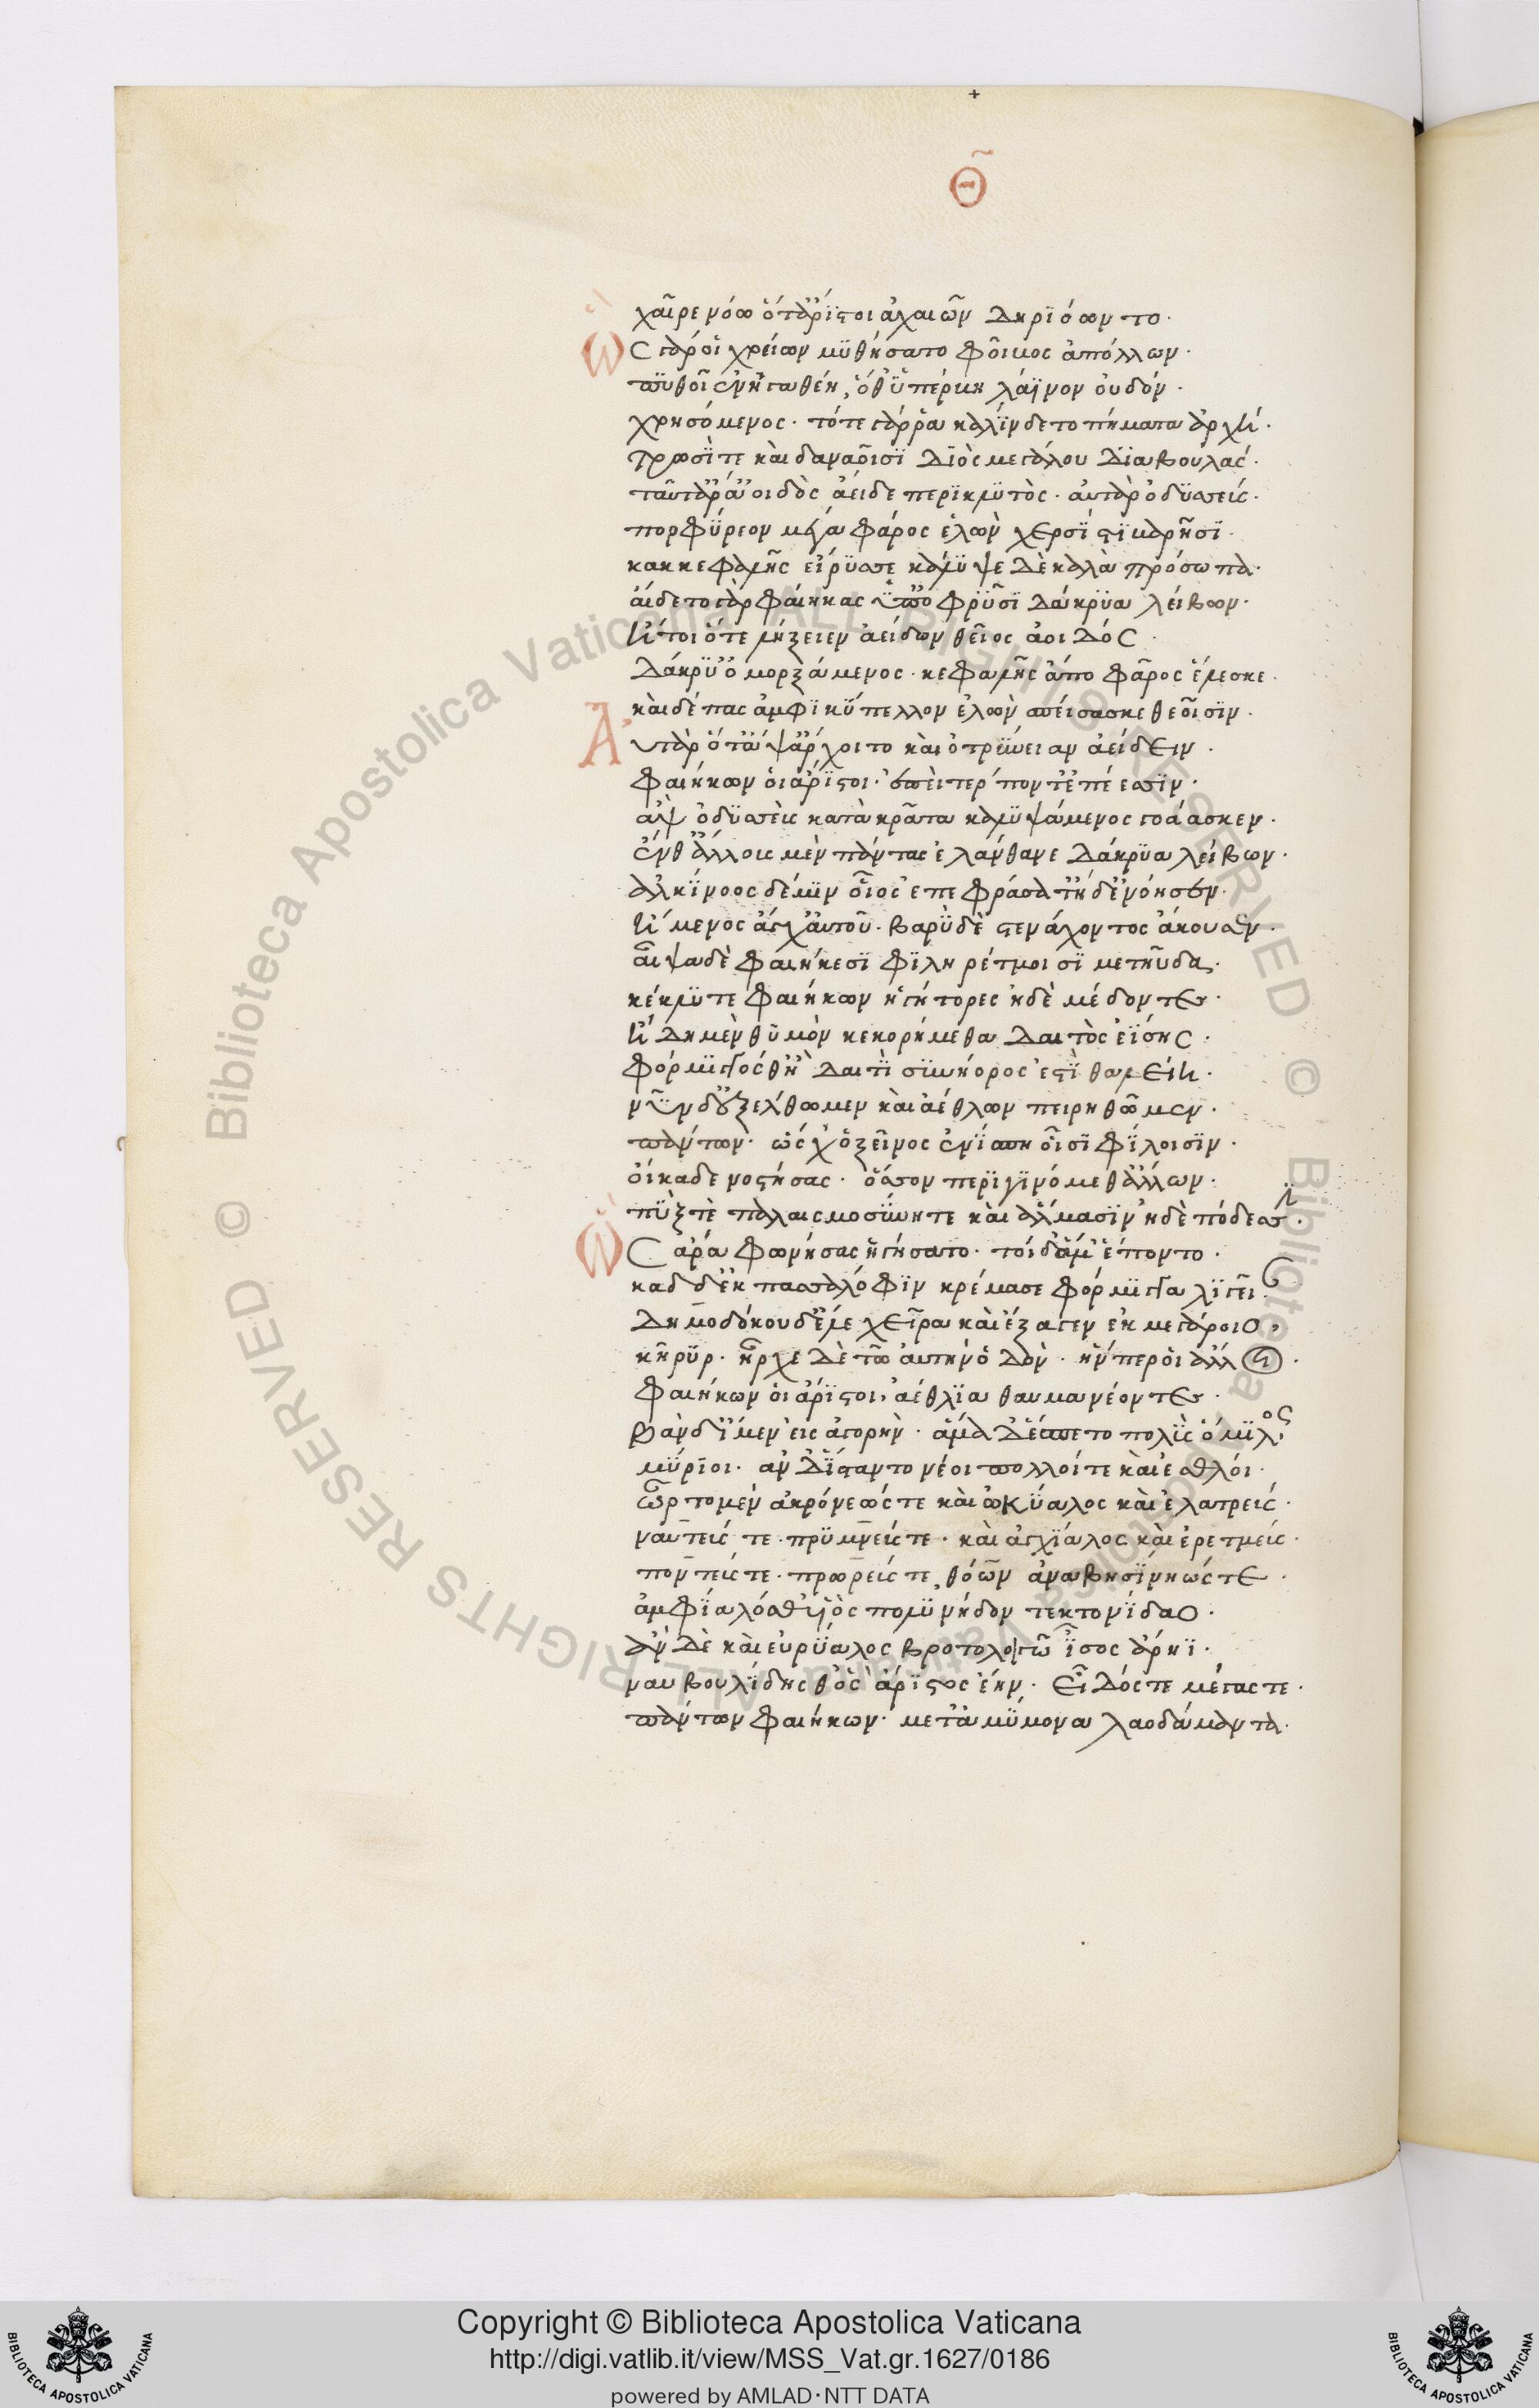 +
Θ
χαῖρε νόω ὅτ' ἄριστοι ἀχαιῶν δηριόωντο·
Ὣς γάρ οἱ χρείων μυθήσατο φοῖβος ἀπόλλων·
πυθοῖ ἐν ἠγαθέη, ὅθ' ὑπέρβη λάϊνον οὐδόν·
χρησόμενος· τότε γάρ ῥα κυλίνδετο πήματα ἀρχή·
τρωσί τε καὶ δαναοῖσι διὸς μεγάλου διὰ βουλάς·
ταῦτ' ἄρ' ἀοιδὸς ἄειδε περικλυτὸς· αὐτὰρ ὀδυσσεύς·
πορφύρεον μέγα φάρος ἑλὼν χερσὶ στιβαρῇσι·
κακκεφαλῆς εἴρυσσε κάλυψε δὲ καλὰ πρόσωπα·
αἴδετο γὰρ φαίηκας ὑπ' ὀφρύσι δάκρυα λείβων·
ἤτοι ὅτε λήξειεν ἀείδων θεῖος ἀοιδός·
δάκρυ' ὀμορξάμενος· κεφαλῆς ἄπο φᾶρος ἕλεσκε·
καὶ δέπας ἀμφικύπελλον ἑλὼν σπείσασκε θεοῖσιν·
Αὐτὰρ ὅτ' ἂψ ἄρχοιτο καὶ ὀτρύνειαν ἀείδειν·
φαιήκων οἱ ἄριστοι· ἐπεὶ τέρποντ' ἐπέεσσιν·
ἂψ ὀδυσσεὺς κατὰ κρᾶτα καλυψάμενος γοάασκεν·
ἔνθ' ἄλλους μὲν πάντας ἐλάνθανε δάκρυα λείβων·
ἀλκίνοος δέ μιν οἶος ἐπεφράσατ' ἠδ' ἐνόησεν·
ἥμενος ἄγχ' αὐτοῦ· βαρὺ δὲ στενάχοντος ἄκουσεν·
αἶψα δὲ φαιήκεσι φιληρέτμοισι μετηῦδα·
κέκλυτε φαιήκων ἡγήτορες ἠδὲ μέδοντες·
ἤδη μὲν θυμὸν κεκορήμεθα δαιτὸς ἐΐσης·
φόρμιγγός θ' ἣ δαιτὶ συνήορος ἐστὶ θαλείη·
νῦν δ' ἐξέλθωμεν καὶ ἀέθλων πειρηθῶμεν·
πάντων· ὥς χ' ὁ ξεῖνος ἐνίσπη οἷσι φίλοισιν·
οἴκαδε νοστήσας· ὅσσον περιγινόμεθ' ἄλλων·
πύξ τὲ παλαισμοσύνη τε καὶ ἅλμασιν ἠδὲ πόδεσσιν·
Ὣς ἄρα φωνήσας ἡγήσατο· τοὶ δ' ἅμ' ἕποντο·
καδ δ' ἐκ πασσαλόφιν κρέμασε φόρμιγγα λίγειαν·
δημοδόκου δ' ἕλε χεῖρα καὶ ἔξαγεν ἐκ μεγάροιο,
κῆρυξ· ἦρχε δὲ τῶ αὐτὴν ὁδὸν· ἥν περ οἱ ἄλλοι·
φαιήκων οἱ ἄριστοι, ἀέθλια θαυμανέοντες·
βὰν δ' ἴμεν εἰς ἀγορὴν· ἅμα δ' ἕσπετο πολὺς ὅμιλος·
μύριοι· ἂν δ' ἵσταντο νέοι πολλοί τε καὶ ἐσθλοί·
ὦρτο μὲν ἀκρόνεώς τε καὶ ὠκύαλος καὶ ἐλατρεύς·
ναυτεύς τε· πρυμνεύς τε· καὶ ἀγχίαλος καὶ ἐρετμεύς·
ποντεύς τε· πρωρεύς τε, θόων ἀναβησίνηώς τε·
ἀμφίαλός θ' υἱὸς πολυνήδου τεκτονίδαο·
ἂν δὲ καὶ εὐρύαλος βροτολοιγῶ ἶσος ἄρηϊ·
ναυβολίδης θ' ὃς ἄριστος ἔην· εἶδός τε μέγας τε·
πάντων φαιήκων· μετ' ἀμύμονα λαοδάμαντα·
Copyright © Biblioteca Apostolica Vaticana
http://digi.vatlib.it/view/MSS_Vat.gr.1627/0186
powered by AMLAD·NTT DATA